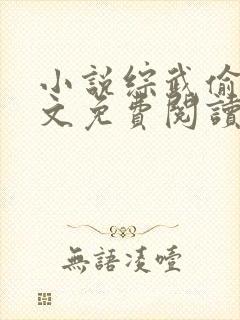 小說綜武偷
文免費閱讀
無語凌噎